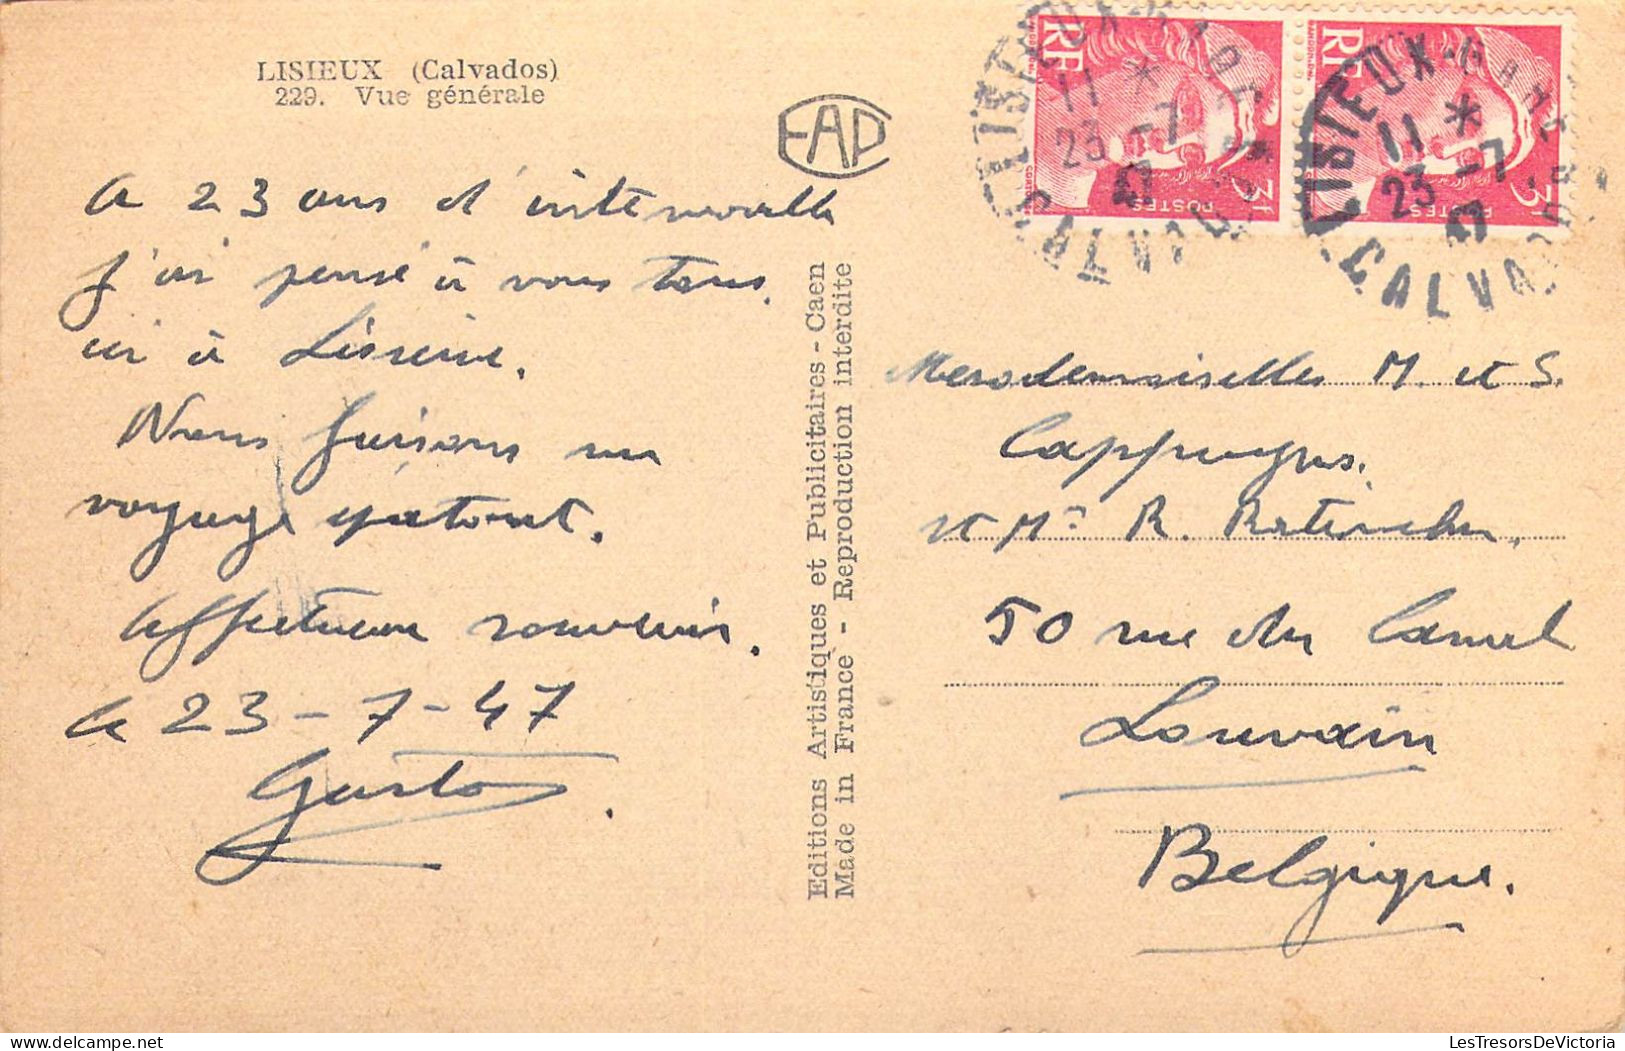 LISIEUX (Calvados)
229. Vue générale
EAP
A 23 ans d'intervalle
j'ai pensé à vous tous
ici à Lisieux.
Nous faisons un
voyage épatant.
Affectueux souvenir.
Le 23-7-47
Gaston
Editions Artistiques et Publicitaires - Caen
Made in France - Reproduction interdite
RF
POSTES
3f
RF
POSTES
3f
LISIEUX-GARE
11 *
23 -7
47
CALVADOS
LISIEUX-GARE
11 *
23 -7
47
CALVADOS
Mesdemoiselles M. et S.
Cappuyns.
et Mr R.
50 rue du Canal
Louvain
Belgique.
LesTresorsDeVictoria